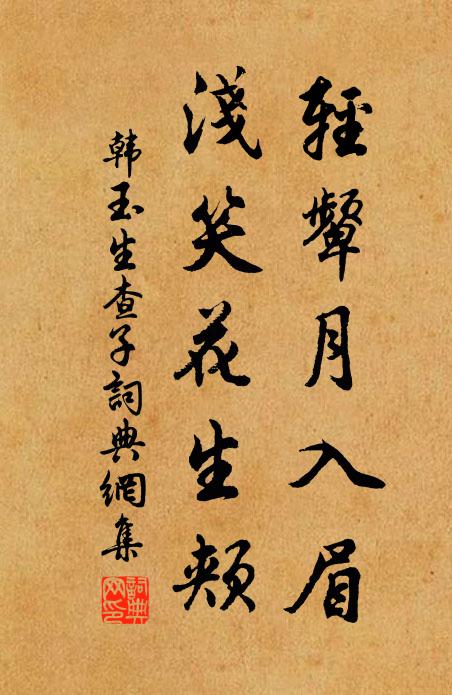 輕顰月入眉
淺笑花生頰
韩玉生查子詞典網集
詞典網印